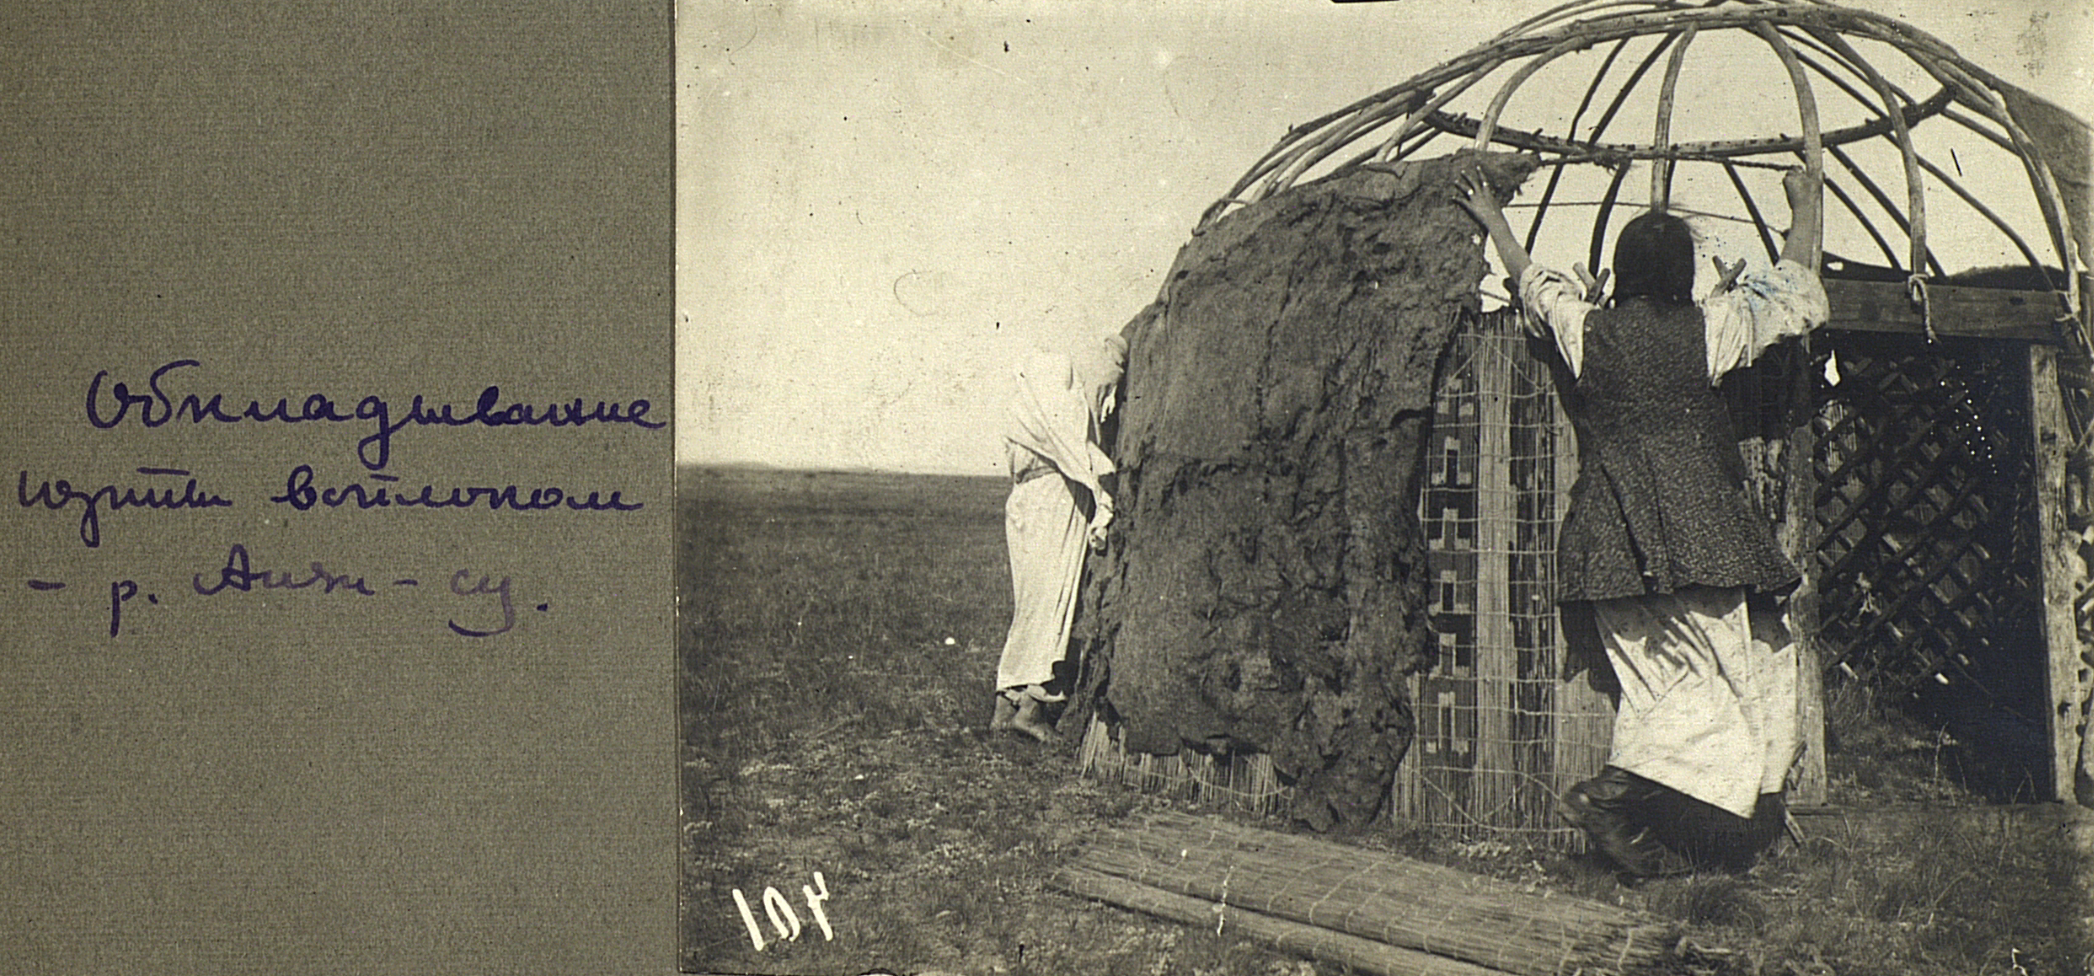 Обкладывание
юрты войлоком
- р. су.
104